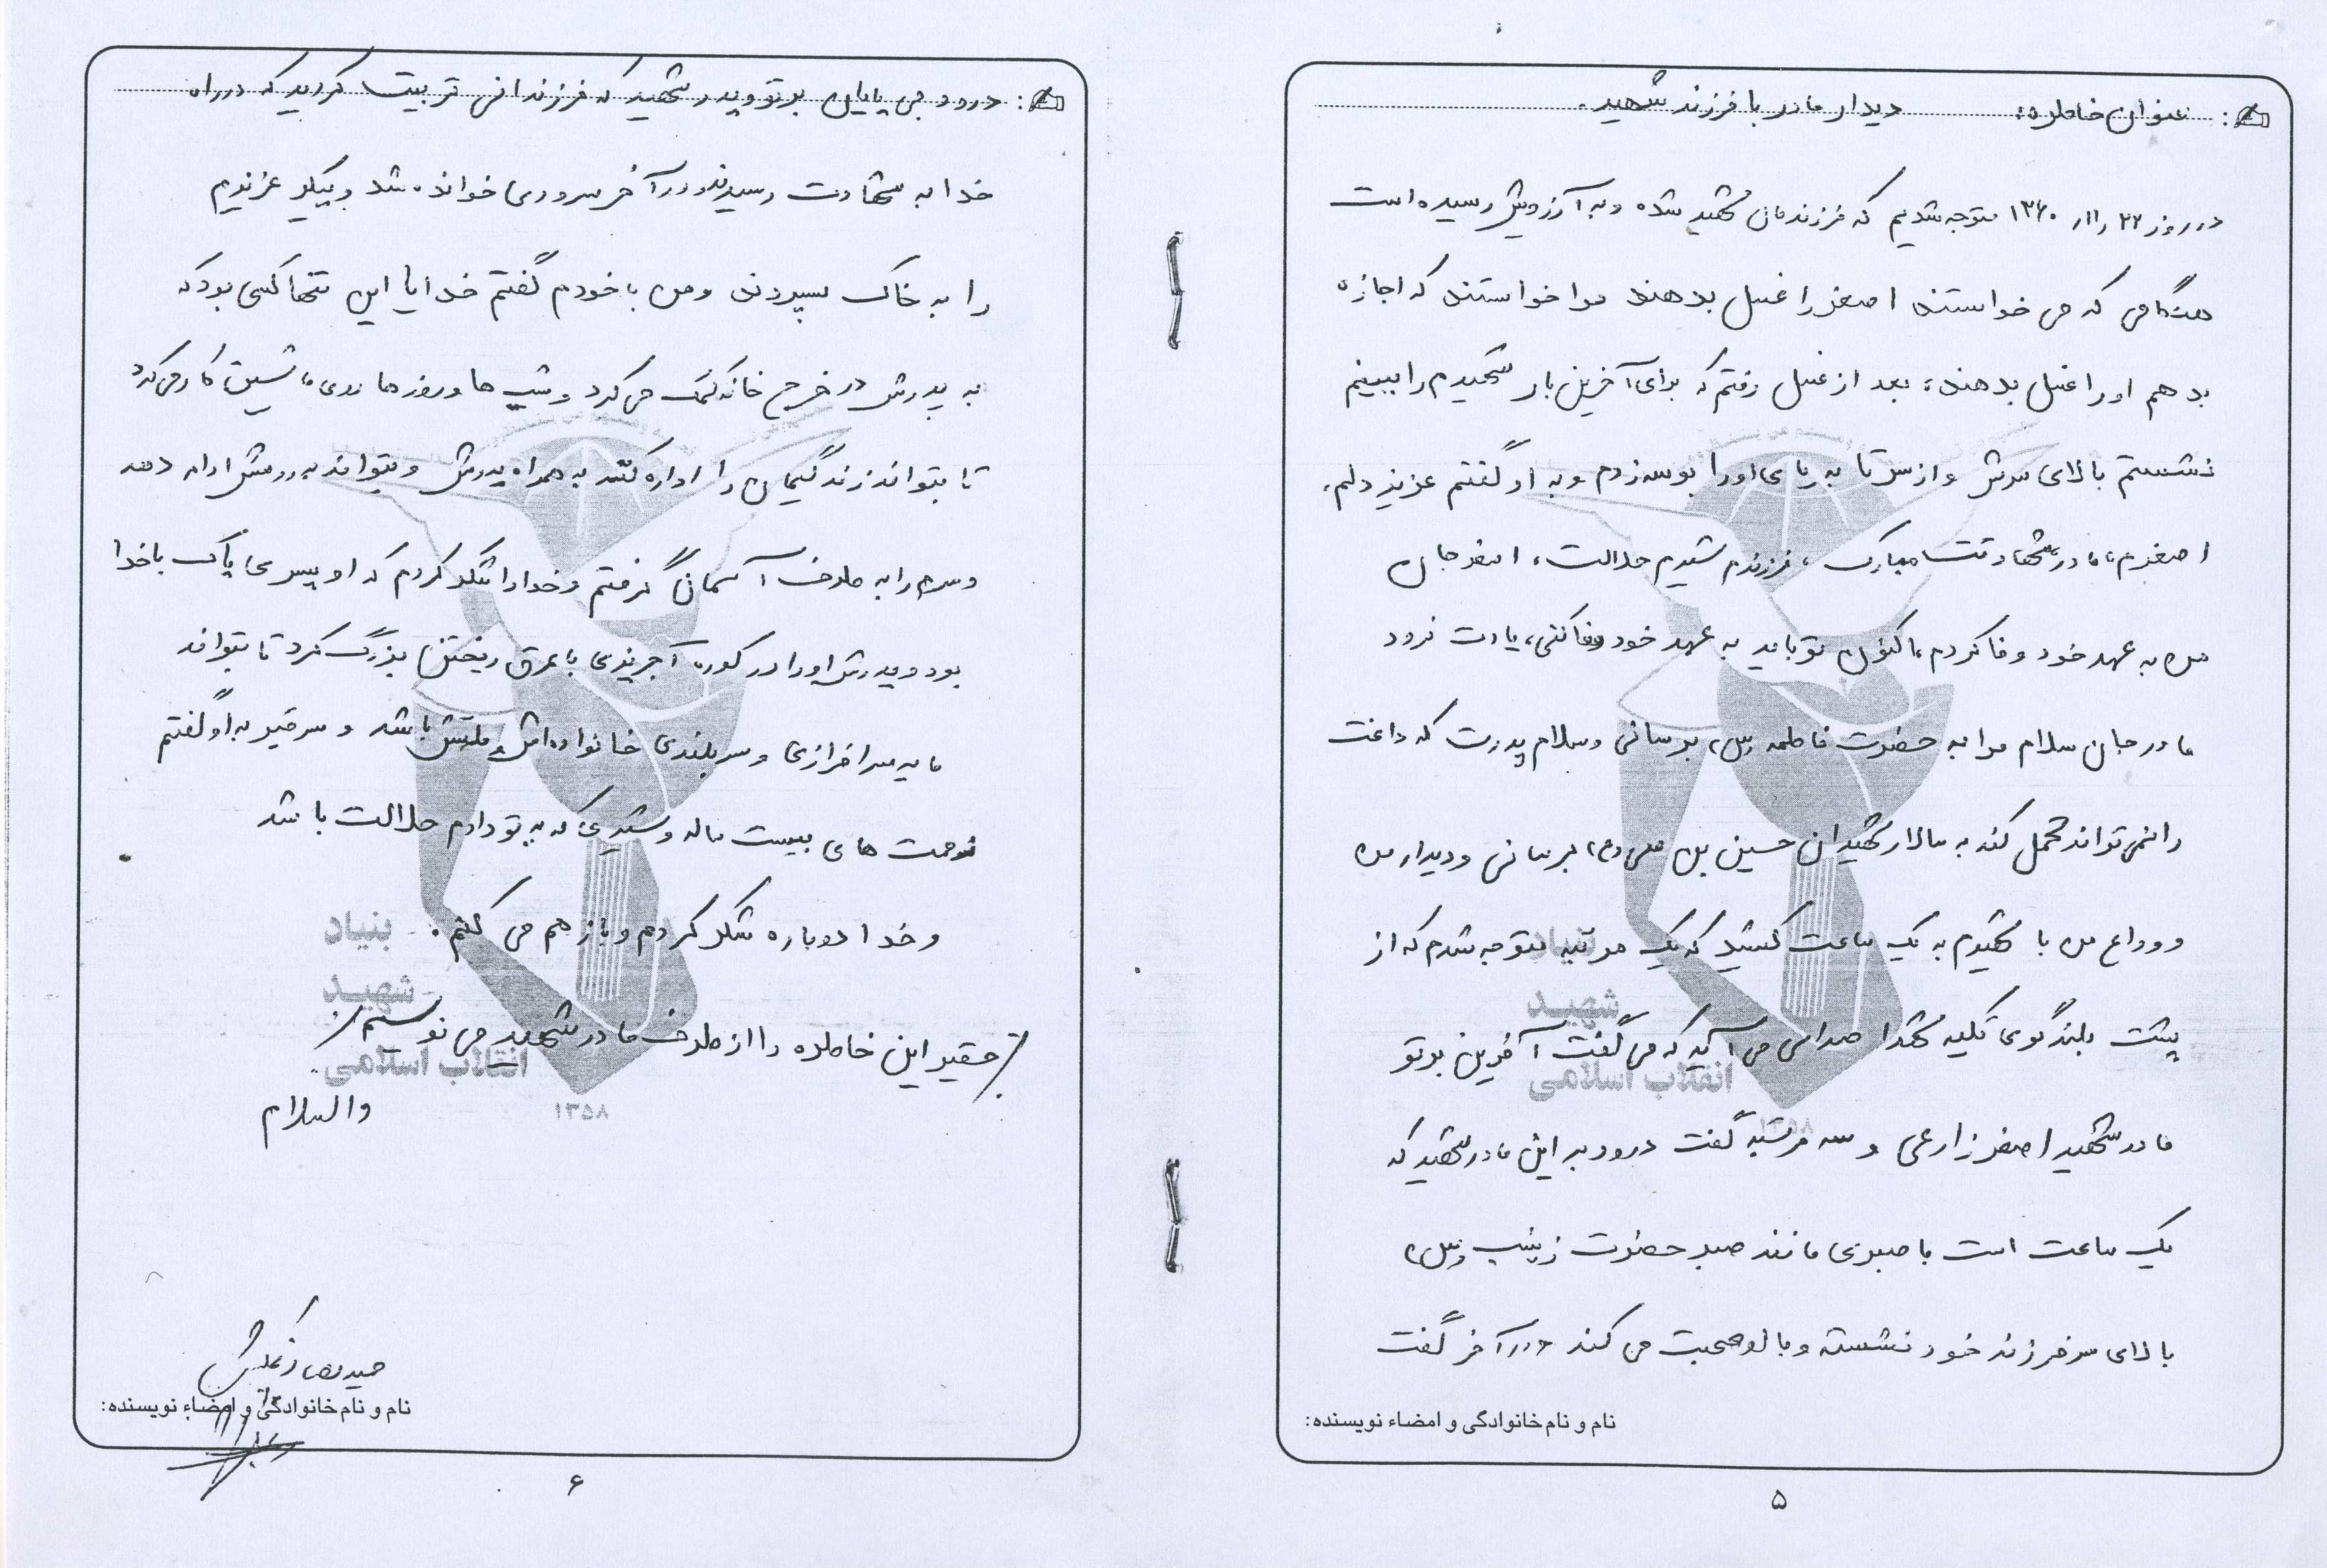 عنوان خاطره: دیدار مادر با فرزند شهید.
در روز ۲۲ / ۱۱ / ۱۳۶۰ متوجه شدیم که فرزندمان شهید شده و به آرزویش رسیده است
هنگامی که می خواستند اصغر را غسل بدهند مرا خواستند که اجازه
بدهم او را غسل بدهند، بعد از غسل رفتم که برای آخرین بار شهیدم را ببینم
نشستم بالای سرش و از سر تا به پای او را بوسه زدم و به او گفتم عزیز دلم،
اصغرم، مادر شهادتت مبارک، فرزندم شیرم حلالت، اصغر جان
من به عهد خود وفا کردم، اکنون تو باید به عهد خود وفا کنی، یادت نرود
مادر جان سلام مرا به حضرت فاطمه (س) برسانی و سلام پدرت که داغت
را نمی تواند تحمل کند به سالار شهیدان حسین بن علی (ع) برسانی و دیدار من
و وداع من با شهیدم به یک ساعت کشید که یک مرتبه متوجه شدم که از
پشت بلندگوی تکیه شهدا صدایی می آید که می گفت آفرین بر تو
مادر شهید اصغر زارعی و سه مرتبه گفت درود بر این مادر شهید که
یک ساعت است با صبری مانند صبر حضرت زینب (س)
بالای سر فرزند خود نشسته و با او صحبت می کند و در آخر گفت
نام و نام خانوادگی و امضاء نویسنده:
۵
درود بی پایان بر تو و پدر شهید که فرزندانی تربیت کردید که در راه
خدا به شهادت رسیدند و در آخر سرودی خوانده شد و پیکر عزیزم
را به خاک سپردند و من با خودم گفتم خدایا این تنها کسی بود که
به پدرش در خرج خانه کمک می کرد و شب ها و روزها روی ماشین کار می کرد
تا بتواند زندگیمان را اداره کند به همراه پدرش و بتواند به درسش ادامه دهد
و سرم را به طرف آسمان گرفتم و خدا را شکر کردم که او پسری پاک با خدا
بود و پدرش او را در کوره آجرپزی با عرق ریختن بزرگ کرد تا بتواند
مایه سرافرازی و سربلندی خانواده اش و ملتش باشد و سر قبر به او گفتم
زحمت های بیست ساله و شیری که به تو دادم حلالت باشد
و خدا دوباره شکر کردم و باز هم می کنم.
حقیر این خاطره را از طرف مادر شهید می نویسم
والسلام
نام و نام خانوادگی و امضاء نویسنده:
۶
بنیاد
شهید
انقلاب اسلامی
۱۳۵۸
شهید
انقلاب اسلامی
۱۳۵۸